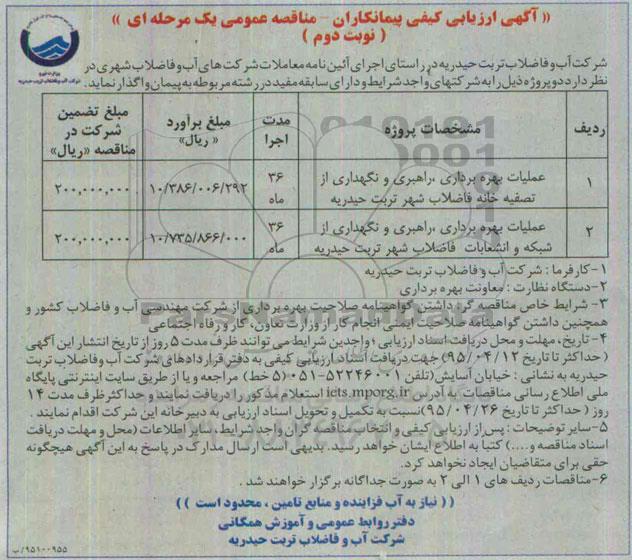 « آگهی ارزیابی کیفی پیمانکاران - مناقصه عمومی یک مرحله ای »
( نوبت دوم )
وزارت نیرو
شرکت آب و فاضلاب تربت حیدریه
شرکت آب و فاضلاب تربت حیدریه در راستای اجرای آئین نامه معاملات شرکت های آب و فاضلاب شهری در
نظر دارد دو پروژه ذیل را به شرکتهای واجد شرایط و دارای سابقه مفید در رشته مربوطه به پیمان واگذار نماید.
ردیف
مشخصات پروژه
مدت اجرا
مبلغ برآورد « ریال»
مبلغ تضمین شرکت در مناقصه «ریال»
۱
عملیات بهره برداری ،راهبری و نگهداری از
تصفیه خانه فاضلاب شهر تربت حیدریه
۳۶ ماه
۱۰/۳۸۶/۰۰۶/۲۹۲
۲۰۰,۰۰۰,۰۰۰
۲
عملیات بهره برداری ،راهبری و نگهداری از
شبکه و انشعابات فاضلاب شهر تربت حیدریه
۳۶ ماه
۱۰/۷۳۵/۸۶۶/۰۰۰
۲۰۰,۰۰۰,۰۰۰
۱-کارفرما : شرکت آب و فاضلاب تربت حیدریه
۲-دستگاه نظارت : معاونت بهره برداری
۳- شرایط خاص مناقصه گر: داشتن گواهینامه صلاحیت بهره برداری از شرکت مهندسی آب و فاضلاب کشور و
همچنین داشتن گواهینامه صلاحیت ایمنی انجام کار از وزارت تعاون، کار و رفاه اجتماعی
۴- تاریخ، مهلت و محل دریافت اسناد ارزیابی : واجدین شرایط می توانند ظرف مدت ۵ روز از تاریخ انتشار این آگهی
( حداکثر تا تاریخ ۹۵/۰۴/۱۲) جهت دریافت اسناد ارزیابی کیفی به دفتر قراردادهای شرکت آب و فاضلاب تربت
حیدریه به نشانی : خیابان آسایش(تلفن ۵۲۲۴۶۰۰۱-۰۵۱ (۵ خط) مراجعه و یا از طریق سایت اینترنتی پایگاه
ملی اطلاع رسانی مناقصات به آدرس iets.mporg.ir استعلام مذکور را دریافت نمایند و حداکثر ظرف مدت ۱۴
روز ( حداکثر تا تاریخ ۹۵/۰۴/۲۶) نسبت به تکمیل و تحویل اسناد ارزیابی به دبیرخانه این شرکت اقدام نمایند .
۵-سایر توضیحات : پس از ارزیابی کیفی و انتخاب مناقصه گران واجد شرایط، سایر اطلاعات (محل و مهلت دریافت
اسناد مناقصه و....) کتباً به اطلاع ایشان خواهد رسید. بدیهی است ارسال مدارک در پاسخ به این آگهی هیچگونه
حقی برای متقاضیان ایجاد نخواهد کرد.
۶-مناقصات ردیف های ۱ الی ۲ به صورت جداگانه برگزار خواهند شد .
( ( نیاز به آب فزاینده و منابع تامین ، محدود است ) )
دفتر روابط عمومی و آموزش همگانی
شرکت آب و فاضلاب تربت حیدریه
۹۵۱۰۰۹۵۵/ب